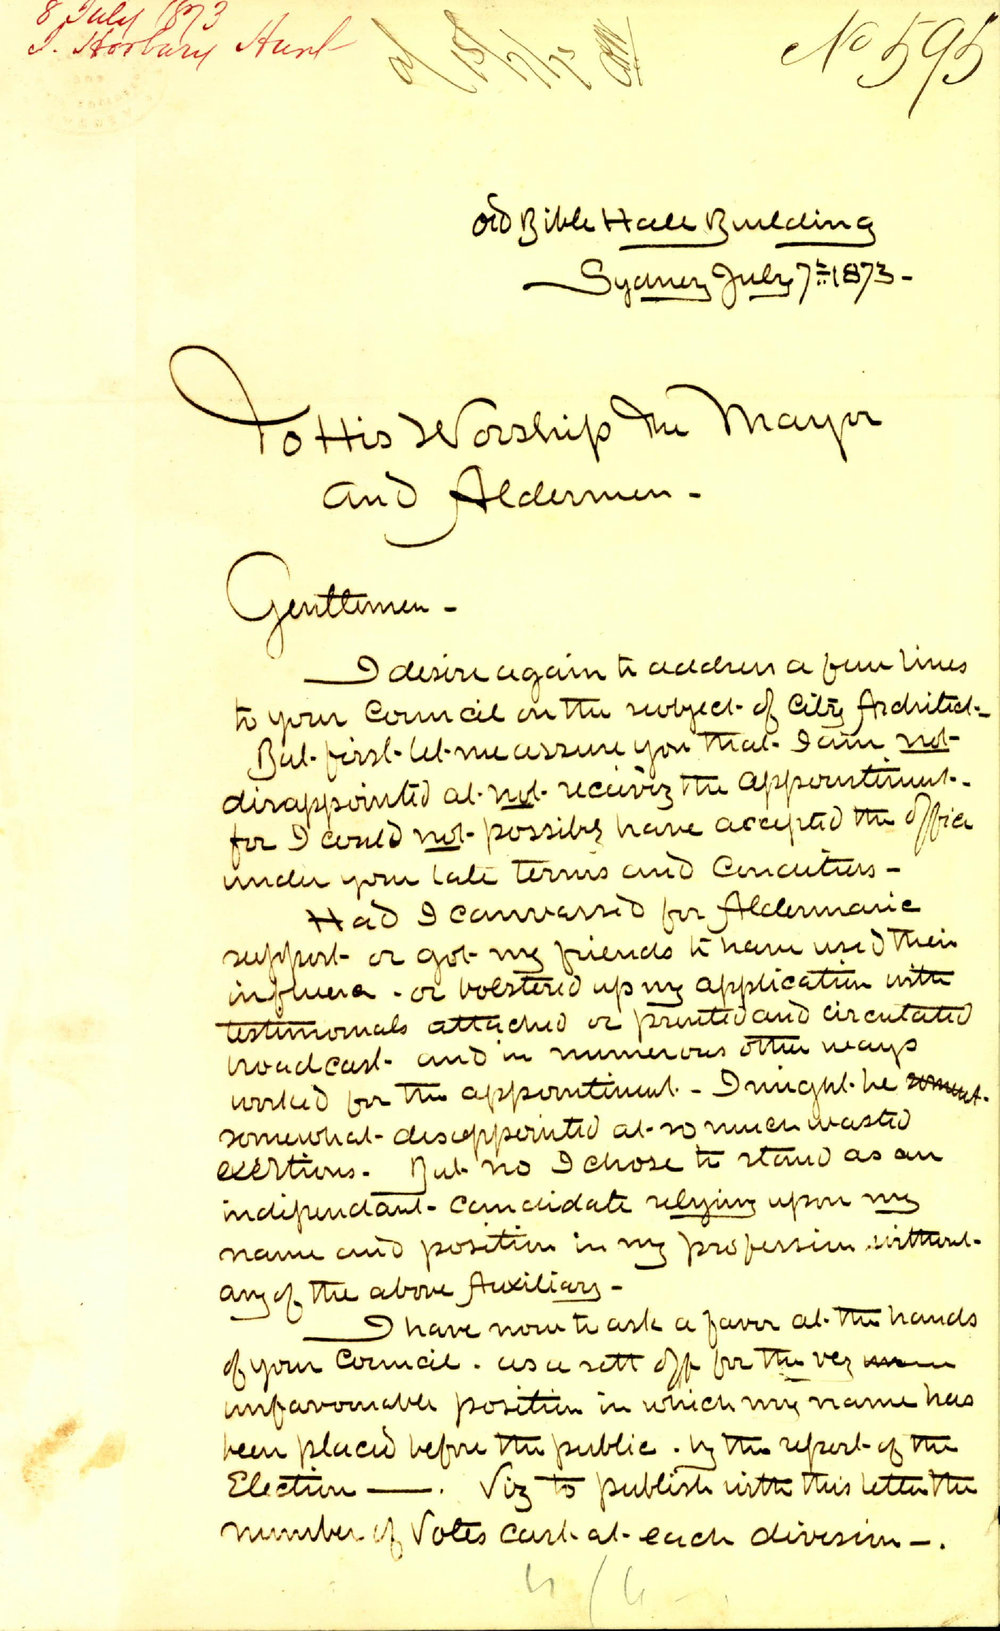 8 July 1873
J. Horbury Hunt
No 595
Old Bible Hall Building
Sydney July 7th 1873 -
To His Worship The Mayor
and Aldermen -
Gentlemen -
I desire again to address a few lines
to your Council on the subject of City Architect -
But first let me assure you that I am not
disappointed at not receiving the appointment -
for I could not possibly have accepted the office
under your late terms and Conditions -
Had I canvassed for Aldermanic
support or got my friends to have used their
influence . or bolstered up my application with
testimonials attached or printed and circulated
broadcast - and in numerous other ways
worked for the appointment - I might be
somewhat disappointed at so much wasted
exertions - But no I chose to stand as an
independant candidate relying upon my
name and position in my profession without
any of the above Auxiliary -
I have now to ask a favor at the hands
of your Council . as a sett off for the very
unfavourable position in which my name has
been placed before the public . by the report of the
Election —. Viz to publish with this letter the
number of Votes cast at each division —.